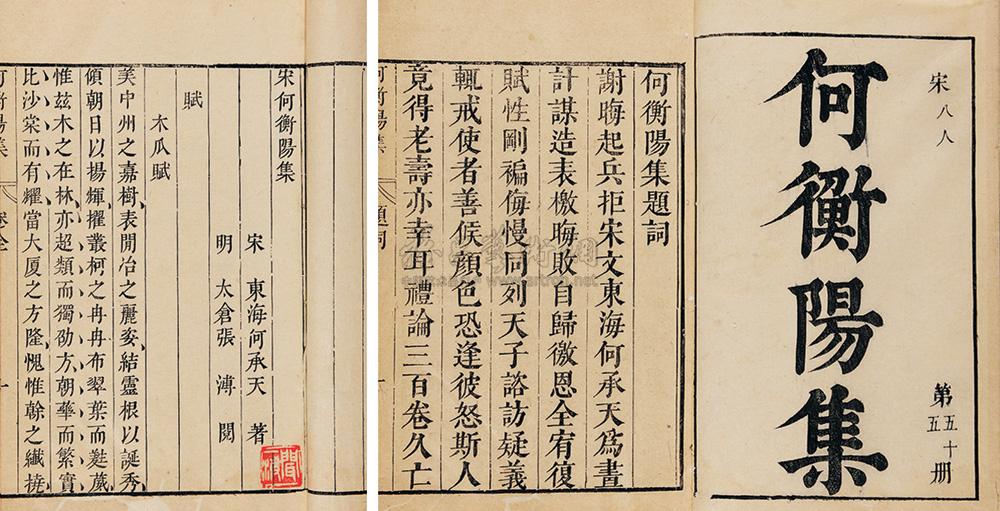 宋八人
何衡陽集
第五十五册
何衡陽集題詞
謝晦起兵拒宋文東海何承天為畫
計謀造表檄晦敗自歸徼恩全宥復
賦性剛褊侮慢同列天子諮訪疑義
輒戒使者善候顏色恐逢彼怒斯人
竟得老壽亦幸耳禮論三百卷久亡
何衡陽集
題詞
宋何衡陽集
宋 東海何承天 著
明 太倉張 溥 閱
賦
木瓜賦
美中州之嘉樹表閒冶之麗姿結靈根以誕秀
傾朝日以揚輝擢叢柯之冉冉布翠葉而
惟茲木之在林亦超類而獨劭方朝華而繁實
比沙棠而有耀當大厦之方隆愧惟榦之纖撓
何衡陽集
卷全
一